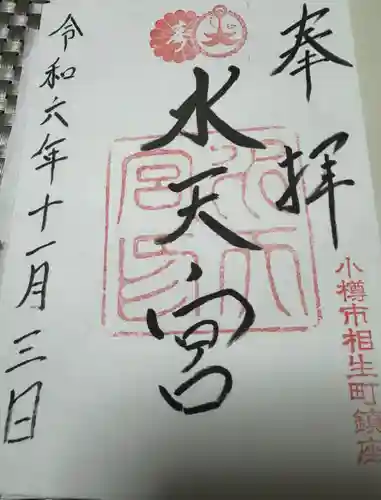 奉拝
小樽市相生町鎮座
水天宮
令和六年十一月三日